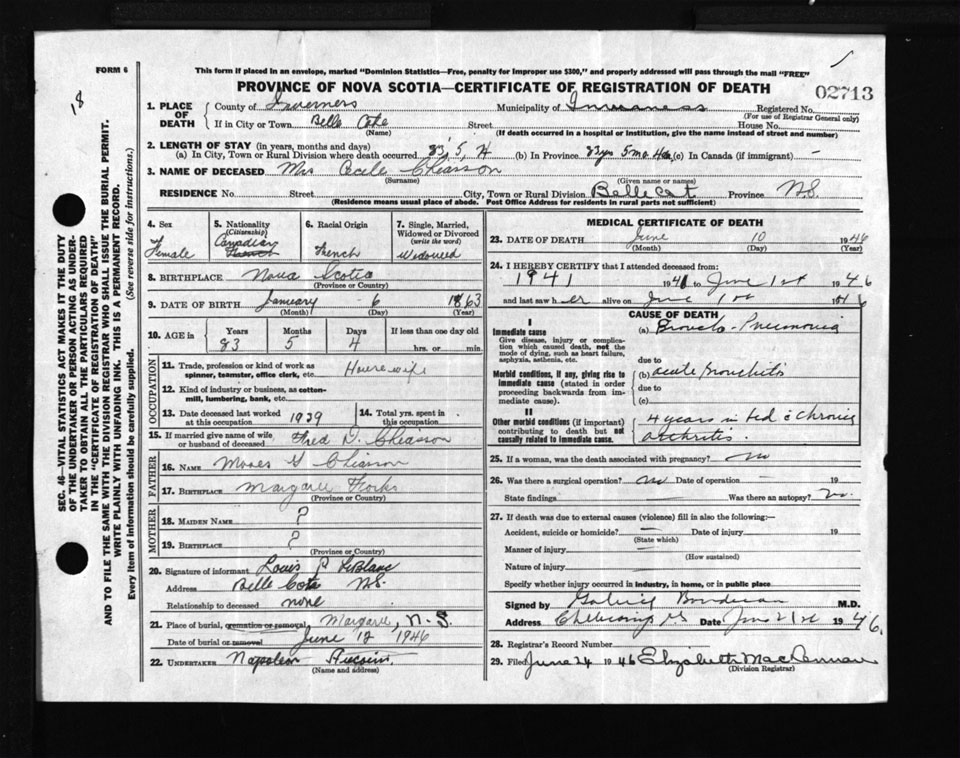 FORM 6
18
This form if placed in an envelope, marked "Dominion Statistics—Free, penalty for improper use $300," and properly addressed will pass through the mail "FREE"
PROVINCE OF NOVA SCOTIA—CERTIFICATE OF REGISTRATION OF DEATH
02713
1. PLACE OF DEATH
County of Inverness Municipality of Inverness Registered No.
(For use of Registrar General only)
If in City or Town Belle Cote Street House No.
(Name) (If death occurred in a hospital or institution, give the name instead of street and number)
2. LENGTH OF STAY (in years, months and days)
(a) In City, Town or Rural Division where death occurred 83, 5, 4 (b) In Province 83 yrs 5 mo 4 (c) In Canada (if immigrant) —
3. NAME OF DECEASED Mrs Cecile Chiasson
(Surname) (Given name or names)
RESIDENCE No. Street City, Town or Rural Division Belle Cot Province N.S.
(Residence means usual place of abode. Post Office Address for residents in rural parts not sufficient)
4. Sex
Female
5. Nationality
(Citizenship)
Canadian
French
6. Racial Origin
French
7. Single, Married, Widowed or Divorced
(write the word)
Widowed
8. BIRTHPLACE Nova Scotia
(Province or Country)
9. DATE OF BIRTH January 6 1863
(Month) (Day) (Year)
10. AGE in Years Months Days If less than one day old
83 5 4 hrs. or min.
OCCUPATION
11. Trade, profession or kind of work as spinner, teamster, office clerk, etc. Housewife
12. Kind of industry or business, as cotton-mill, lumbering, bank, etc.
13. Date deceased last worked at this occupation 1939
14. Total yrs. spent in this occupation
15. If married give name of wife or husband of deceased Fred D. Chiasson
FATHER
16. NAME Moses G Chiasson
17. BIRTHPLACE Margaree Forks
(Province or Country)
MOTHER
18. MAIDEN NAME ?
19. BIRTHPLACE ?
(Province or Country)
20. Signature of informant Louis P LeBlanc
Address Belle Cote N.S.
Relationship to deceased none
21. Place of burial, cremation or removal Margaree, N.S.
Date of burial or removal June 12 1946
22. UNDERTAKER Napoleon Aucoin
(Name and address)
MEDICAL CERTIFICATE OF DEATH
23. DATE OF DEATH June 10 1946
(Month) (Day)
24. I HEREBY CERTIFY that I attended deceased from:
1941 1941 to June 1st 1946
and last saw her alive on June 1st 1946
CAUSE OF DEATH
I
Immediate cause
Give disease, injury or complication which caused death, not the mode of dying, such as heart failure, asphyxia, asthenia, etc.
(a) Broncho-Pneumonia
due to
Morbid conditions, if any, giving rise to immediate cause (stated in order proceeding backwards from immediate cause).
(b) acute Bronchitis
due to
(c)
II
Other morbid conditions (if important) contributing to death but not causally related to immediate cause.
4 years in bed c̄ chronic
arthritis.
25. If a woman, was the death associated with pregnancy? no
26. Was there a surgical operation? no Date of operation 19
State findings Was there an autopsy? no.
27. If death was due to external causes (violence) fill in also the following:—
Accident, suicide or homicide? Date of injury 19
(State which)
Manner of injury
(How sustained)
Nature of injury
Specify whether injury occurred in industry, in home, or in public place
Signed by Gabriel Boudreau M.D.
Address Cheticamp NS Date June 21st 1946.
28. Registrar's Record Number
29. Filed June 24 1946 Elizabeth MacLennan
(Division Registrar)
SEC. 46—VITAL STATISTICS ACT MAKES IT THE DUTY
OF THE UNDERTAKER OR PERSON ACTING AS UNDERTAKER
TO OBTAIN ALL THE PARTICULARS REQUIRED
IN THE "CERTIFICATE OF REGISTRATION OF DEATH"
AND TO FILE THE SAME WITH THE DIVISION REGISTRAR WHO SHALL ISSUE THE BURIAL PERMIT.
WRITE PLAINLY WITH UNFADING INK. THIS IS A PERMANENT RECORD.
Every item of information should be carefully supplied. (See reverse side for instructions.)